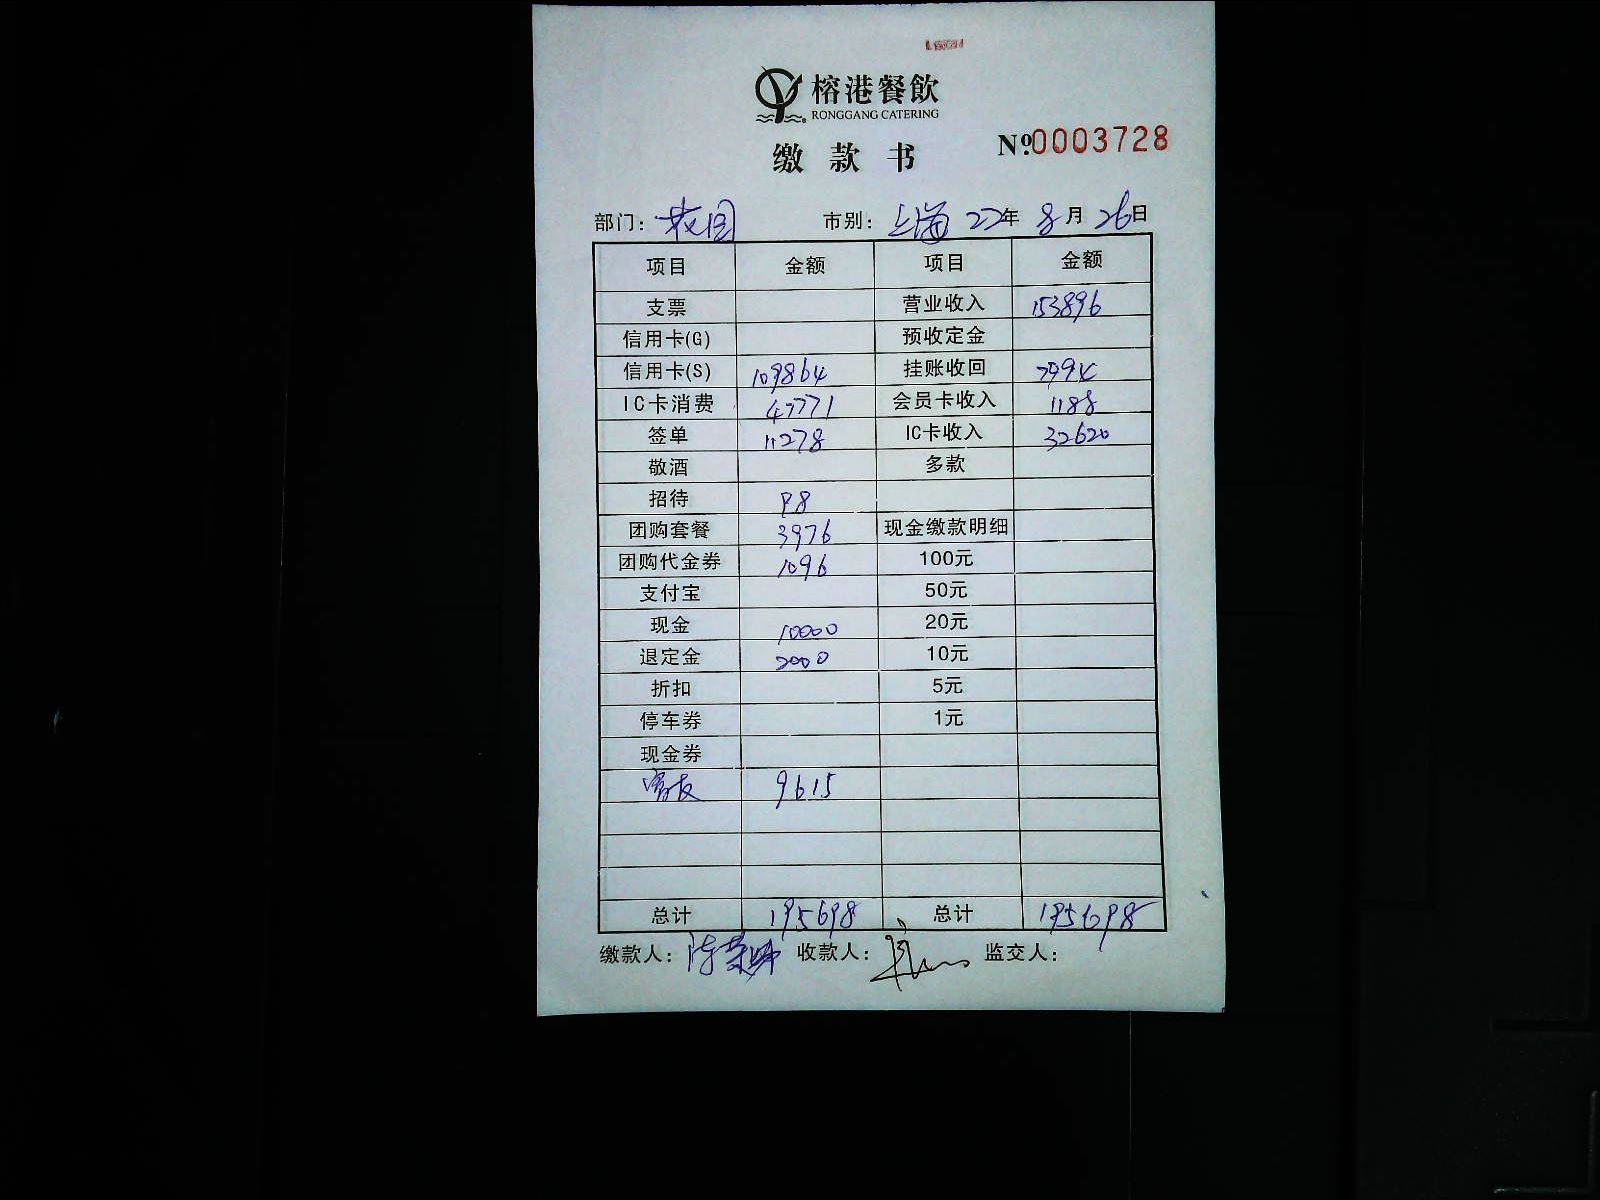 榕港餐飲
RONGGANG CATERING
缴款书 Nº0003728
部门： 市别：上海 22年 8月 26日
项目 金额 项目 金额
支票 营业收入 153896
信用卡(G) 预收定金
信用卡(S) 109864 挂账收回 7994
IC卡消费 47771 会员卡收入 1188
签单 11278 IC卡收入 32620
敬酒 多款
招待 98
团购套餐 3976 现金缴款明细
团购代金券 1096 100元
支付宝 50元
现金 10000 20元
退定金 2000 10元
折扣 5元
停车券 1元
现金券
9615
总计 195698 总计 195698
缴款人： 收款人： 监交人：